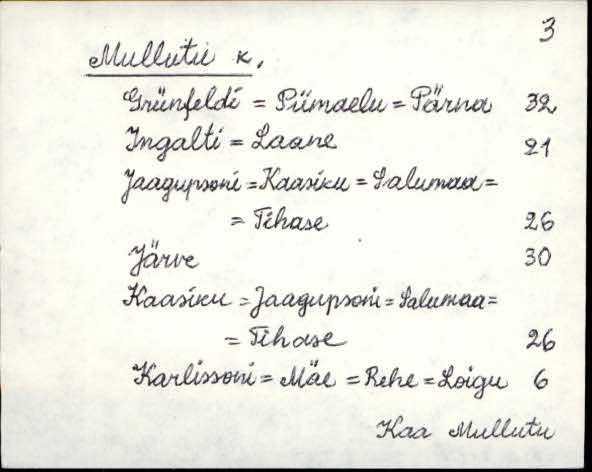 3
Mullutu k.
Grünfeldi = Piimaelu = Pärna 32
Ingalti = Laane 21
Jaagupsoni = Kaasiku = Salumaa =
= Tihase 26
Järve 30
Kaasiku = Jaagupsoni = Salumaa =
= Tihase 26
Karlissoni = Mäe = Rehe = Loigu 6
Kaa Mullutu